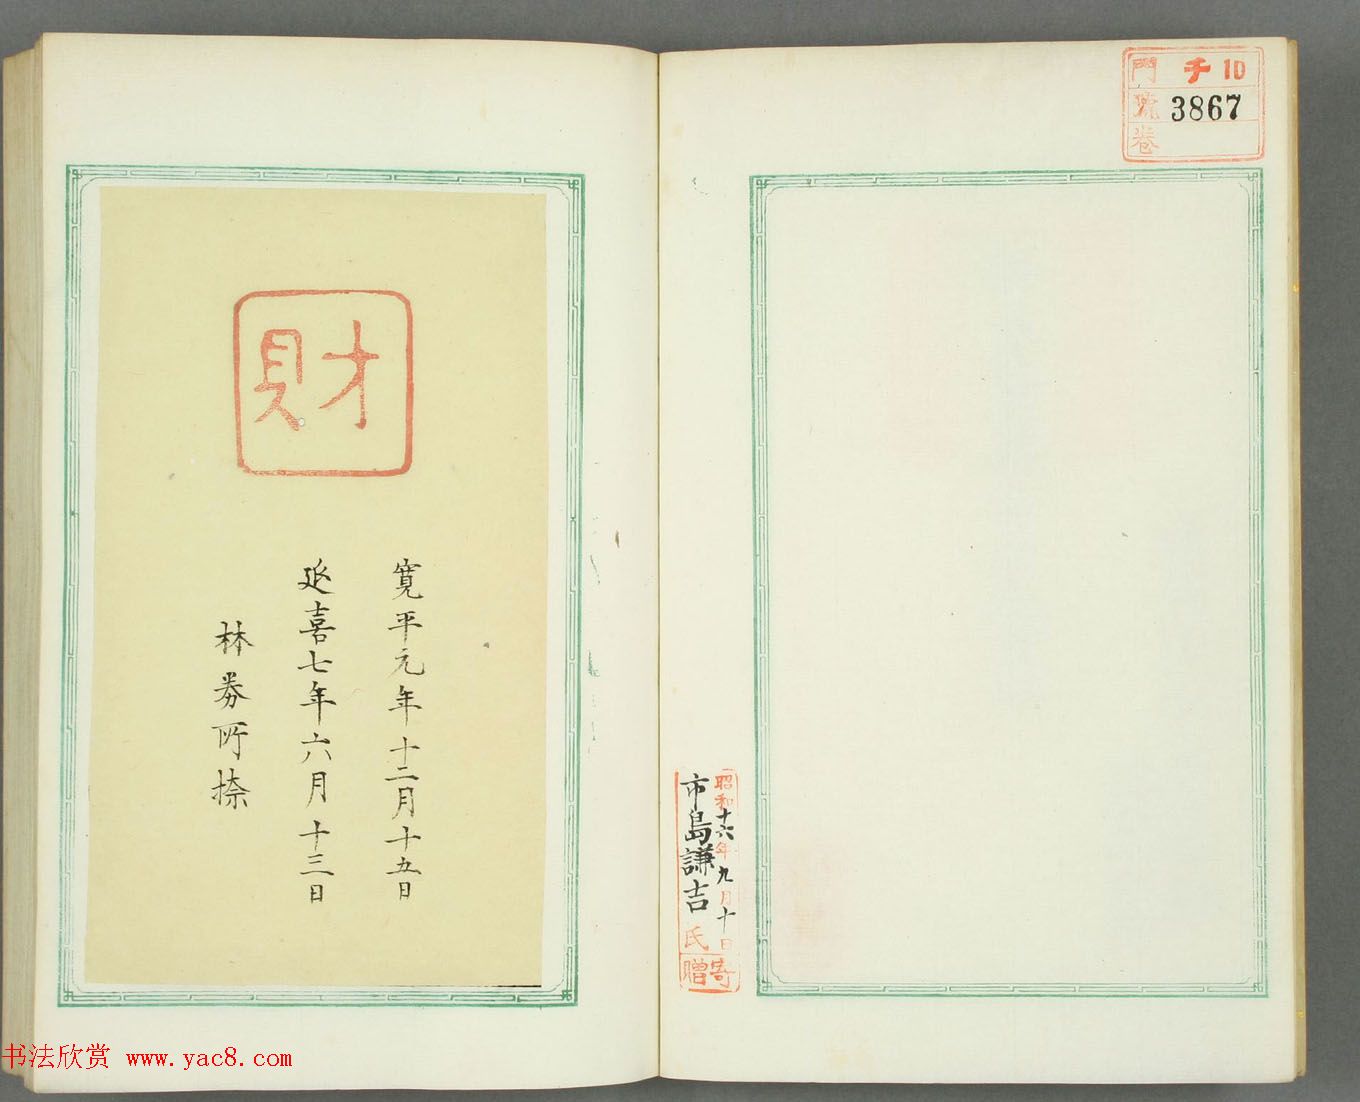 門 チ 10
號 3867
卷
昭和十六年九月十日
市島謙吉氏
寄贈
財
寛平元年十二月十五日
延喜七年六月十三日
林券所捺
书法欣赏 www.yac8.com